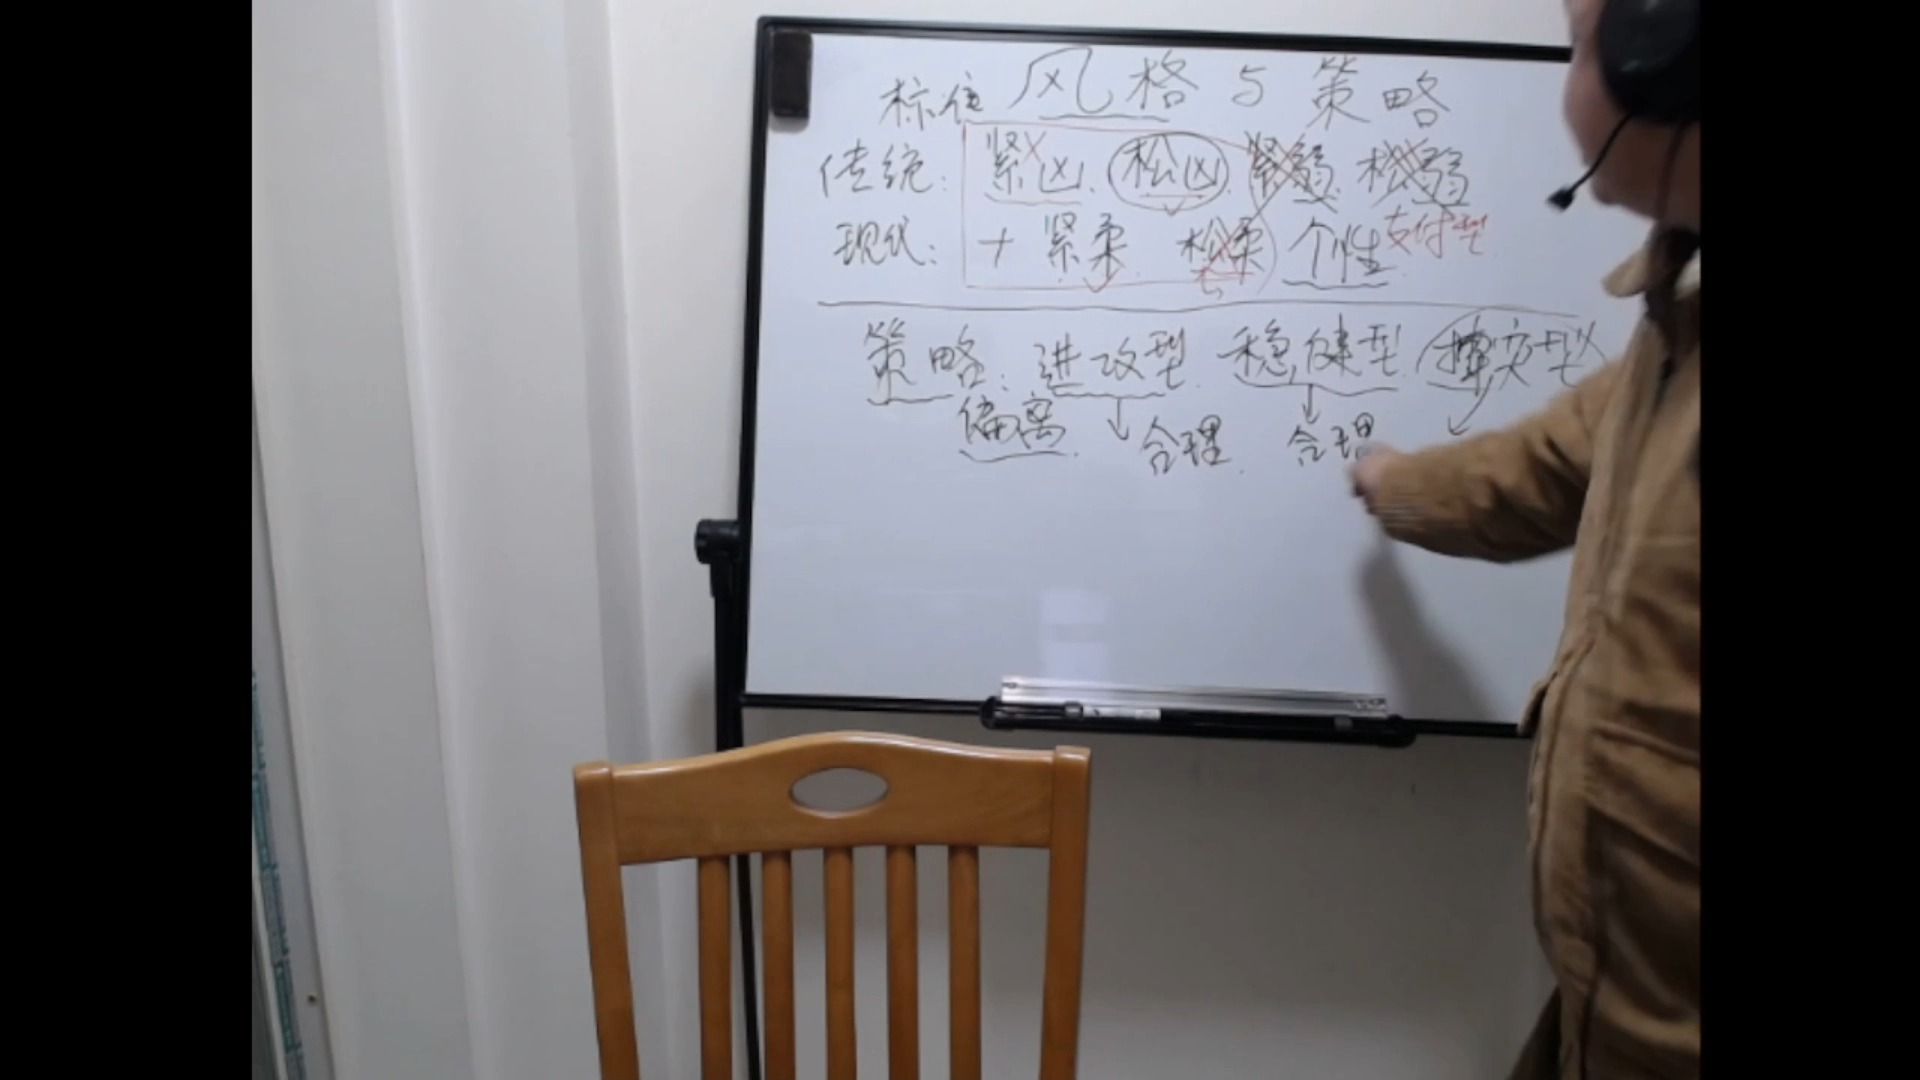 标位 风格与策略
传统: 紧凶、松凶、紧弱、松弱
现代: + 紧柔 松柔 个性 支付型
策略: 进攻型、稳健型
偏离 合理 合理